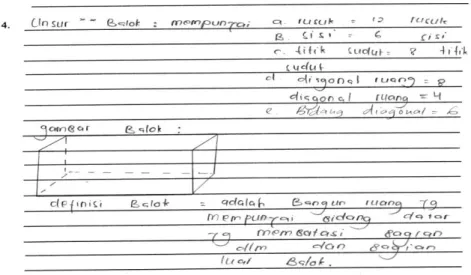 4. Unsur -- Balok : mempunyai a. rusuk = 12 rusuk
B. sisi = 6 sisi
c. titik sudut = 8 titik
sudut
d disgonal ruang = 8
diagonal ruang = 4
e. Bidang diagonal = 6
gambar Balok :
definisi Balok = adalah Bangun ruang yg
mempunyai Bidang datar
yg membatasi Bagian
dlm dan Bagian
luar Balok.